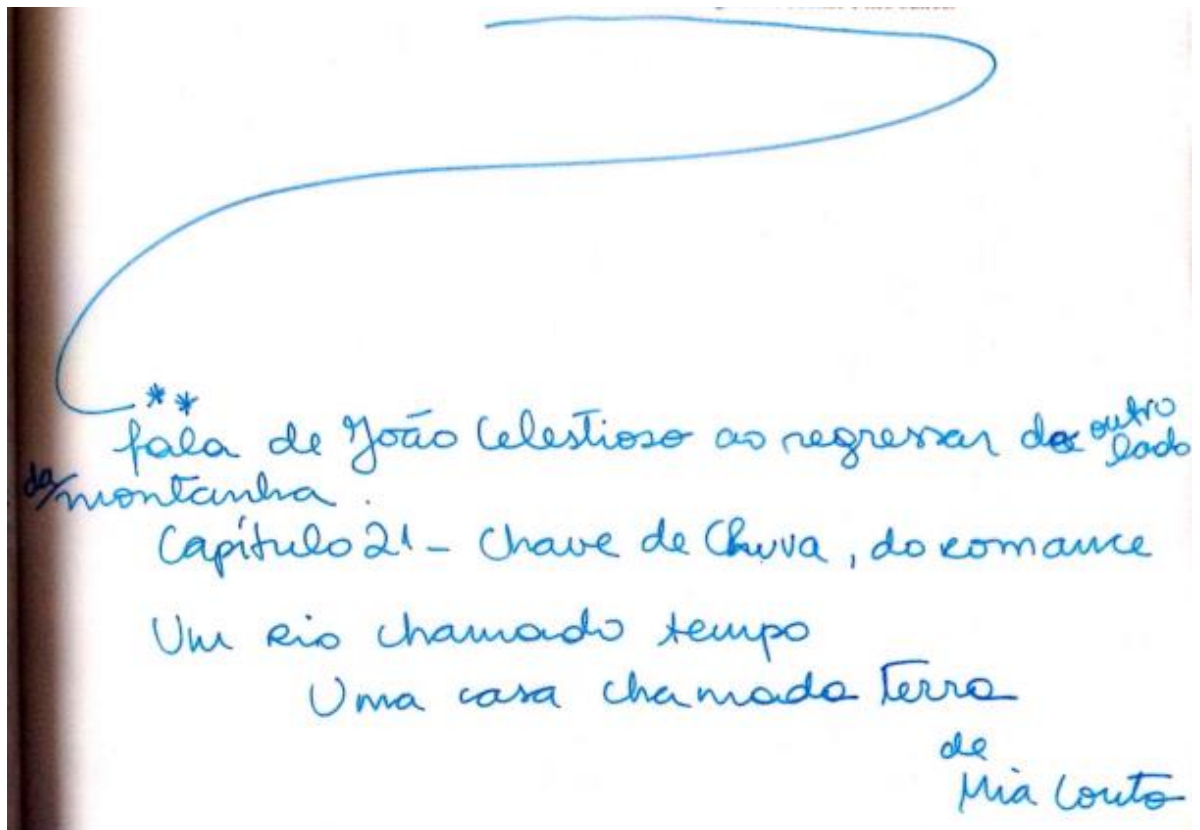 **
fala de João Celestioso ao regressar do outro lado
da montanha.
Capítulo 21 - Chave de Chuva, do romance
Um rio chamado tempo
Uma casa chamada Terra
de
Mia Couto